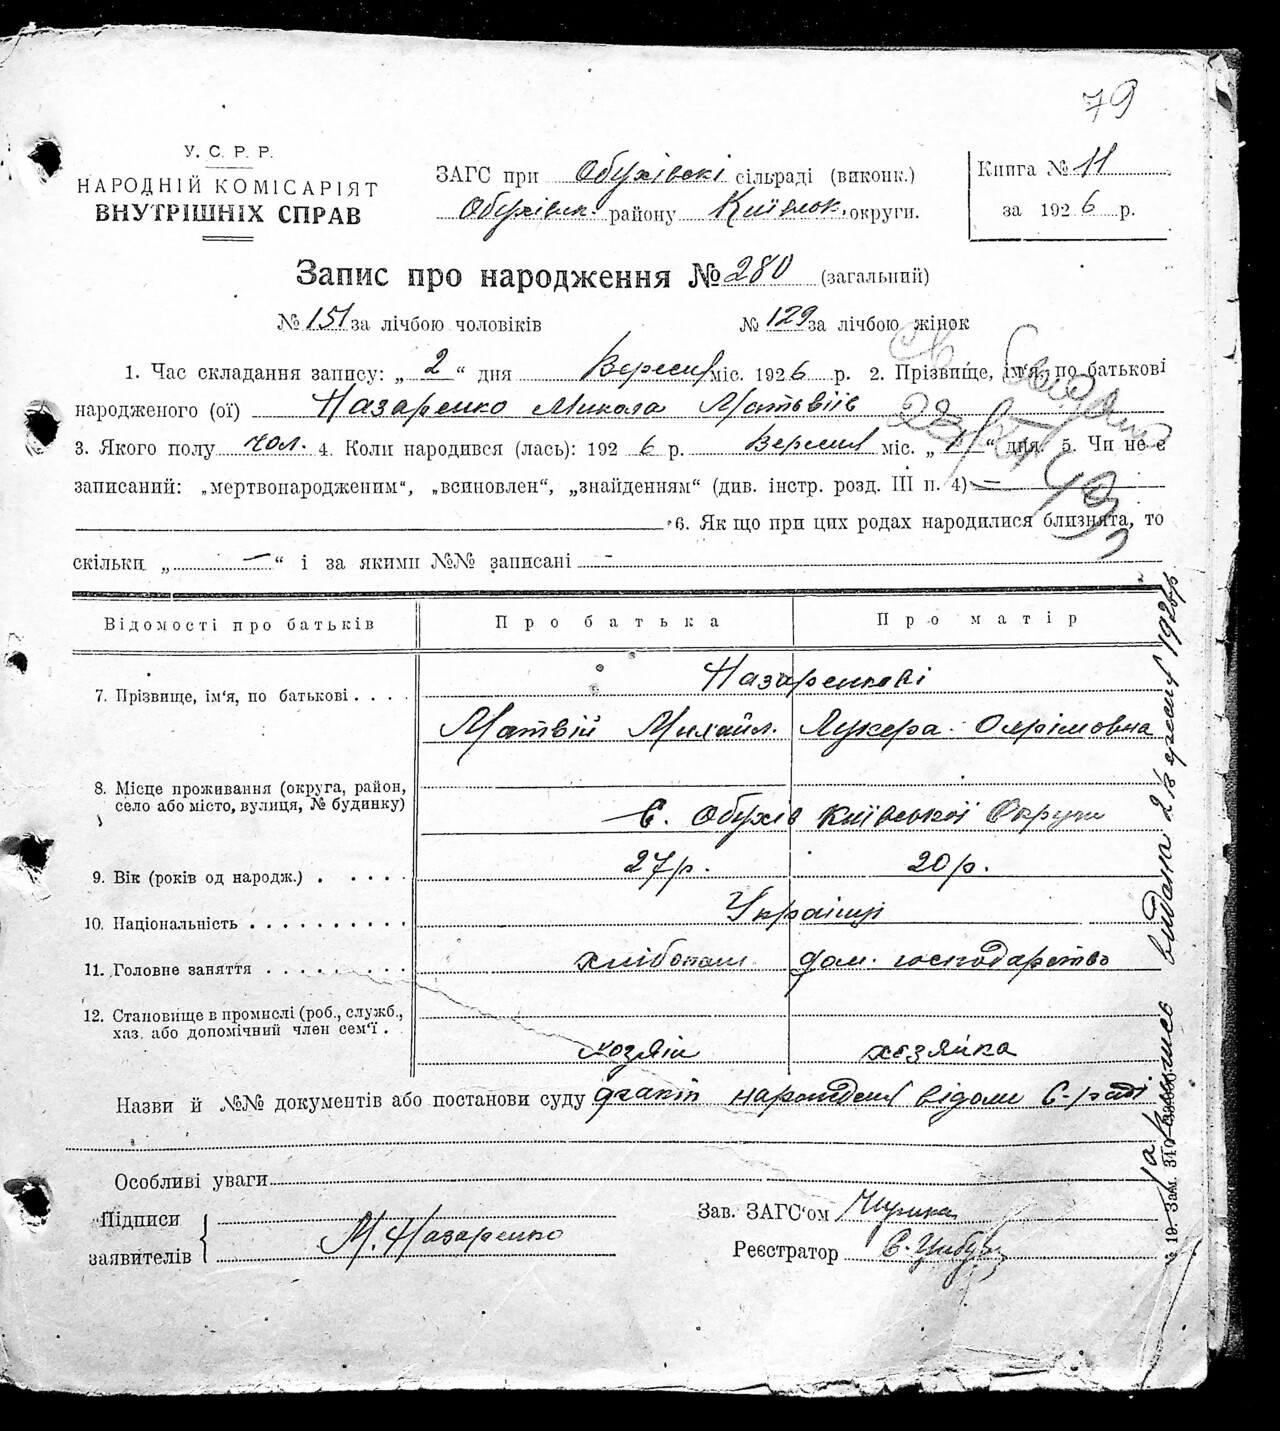 79
У. С. Р. Р.
НАРОДНІЙ КОМІСАРІЯТ
ВНУТРІШНІХ СПРАВ
ЗАГС при Обухівскі сільраді (виконк.)
Обухівськ. району Київськ. округи.
Книга № 11
за 1926 р.
Запис про народження № 280 (загальний)
№ 151 за лічбою чоловіків № 129 за лічбою жінок
1. Час складання запису: „ 2 “ дня Вересня міс. 1926 р. 2. Прізвище, ім'я, по батькові
народженого (ої) Назаренко Микола Матвіїв
3. Якого полу чол. 4. Коли народився (лась): 1926 р. Вересня міс. „ 1 “ дня. 5. Чи не є
записаний: „мертвонародженим“, „всиновлен“, „знайденням“ (див. інстр. розд. III п. 4) —
6. Як що при цих родах народилися близнята, то
скільки „ — “ і за якими №№ записані -
Відомості про батьків Про батька Про матір
7. Прізвище, ім'я, по батькові . . . . Назаренкові
Матвій Михайл. Лукера Охрімовна
8. Місце проживання (округа, район,
село або місто, вулиця, № будинку)
С. Обухів Київської Округи
9. Вік (років од народж.) . . . . . 27 р. 20 р.
10. Національність . . . . . . . . . . Українці
11. Головне заняття . . . . . . . . . хлібопаш. дом. господарство
12. Становище в промислі (роб., служб.,
хаз. або допомічний член сем'ї . .
хозяїн хозяйка
Назви й №№ документів або постанови суду факт народження відоми С-раді
Особливі уваги
Підписи
заявителів
М. Назаренко
Зав. ЗАГС'ом
Реєстратор
видана 2 Вересня 1926 р.